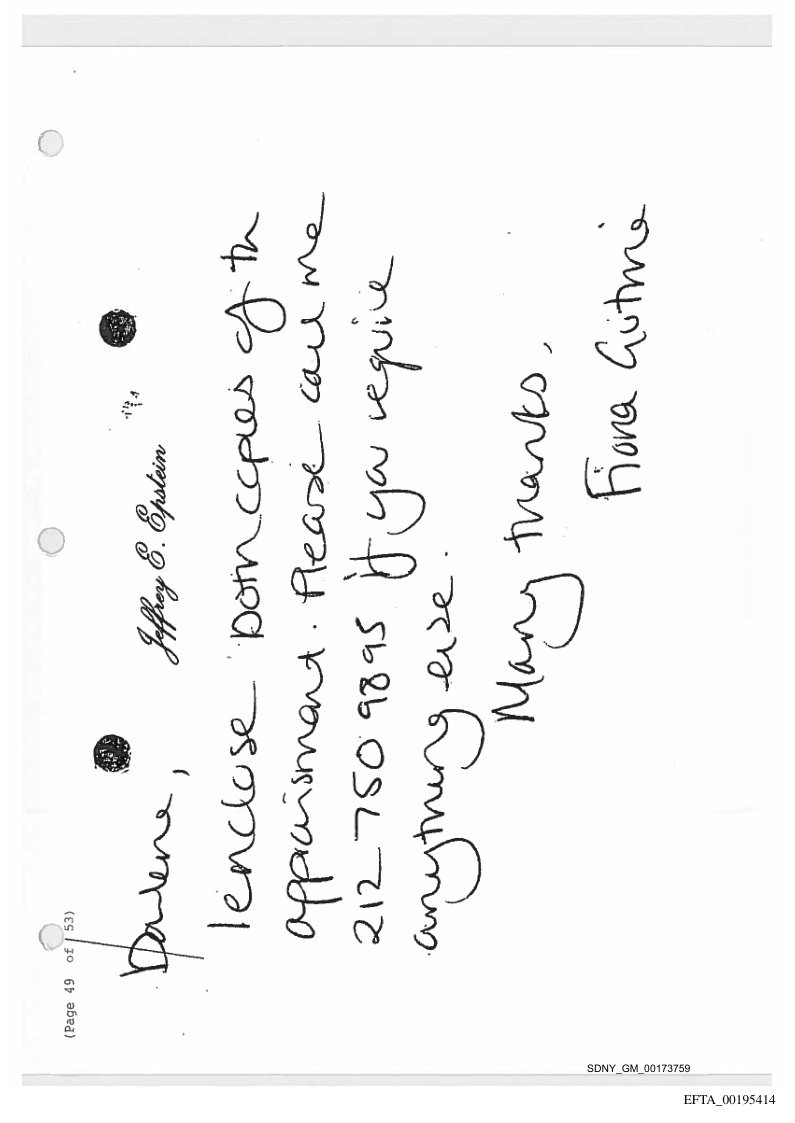 (Page 49 of 53)
Jeffrey E. Epstein
Darlene,
I enclose both copies of th
appraisment. Please call me
212 750 9895 if you require
anything else.
Many thanks,
Fiona
SDNY_GM_00173759
EFTA_00195414